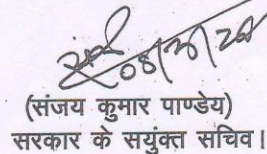 (संजय कुमार पाण्डेय)
सरकार के सयुंक्त सचिव।